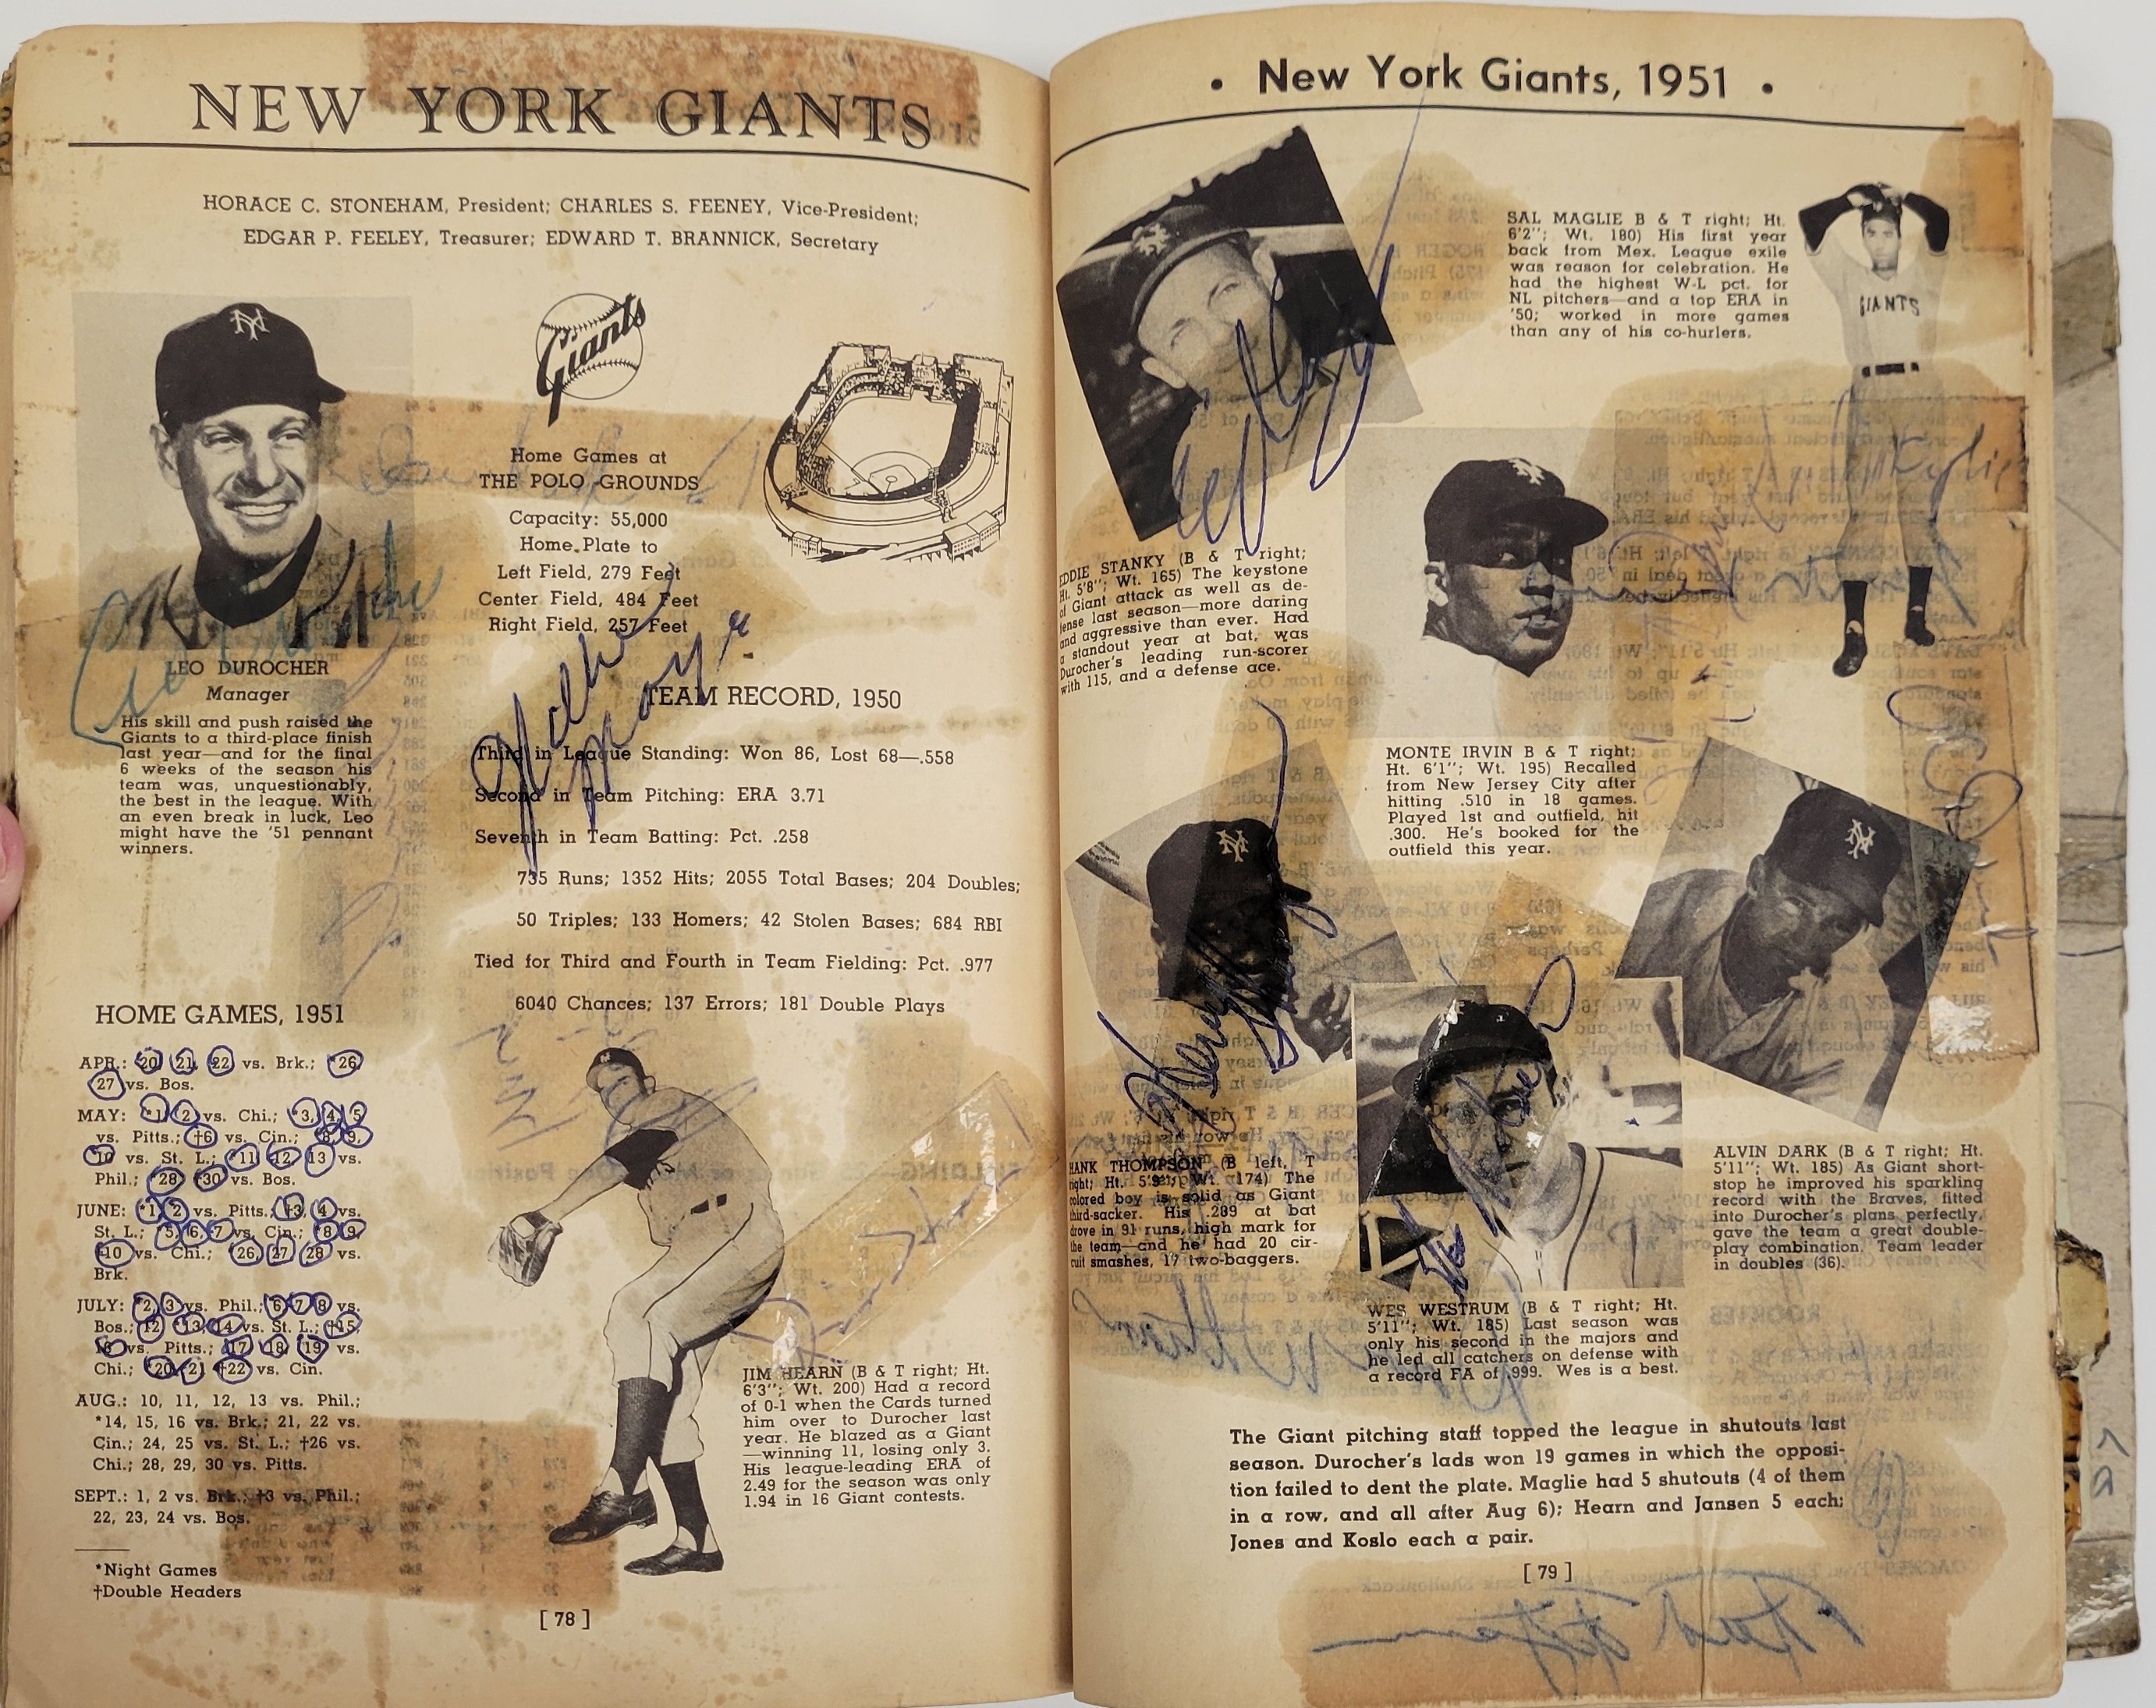 NEW YORK GIANTS
HORACE C. STONEHAM, President; CHARLES S. FEENEY, Vice-President;
EDGAR P. FEELEY, Treasurer; EDWARD T. BRANNICK, Secretary
Giants
Home Games at
THE POLO GROUNDS
Capacity: 55,000
Home Plate to
Left Field, 279 Feet
Center Field, 484 Feet
Right Field, 257 Feet
Willie
Mays
LEO DUROCHER
Manager
His skill and push raised the
Giants to a third-place finish
last year—and for the final
6 weeks of the season his
team was, unquestionably,
the best in the league. With
an even break in luck, Leo
might have the '51 pennant
winners.
TEAM RECORD, 1950
Third in League Standing: Won 86, Lost 68—.558
Second in Team Pitching: ERA 3.71
Seventh in Team Batting: Pct. .258
735 Runs; 1352 Hits; 2055 Total Bases; 204 Doubles;
50 Triples; 133 Homers; 42 Stolen Bases; 684 RBI
Tied for Third and Fourth in Team Fielding: Pct. .977
6040 Chances; 137 Errors; 181 Double Plays
HOME GAMES, 1951
APR.: 20 21 22 vs. Brk.; *26
27 vs. Bos.
MAY: *1, 2 vs. Chi.; *3, 4, 5
vs. Pitts.; †6 vs. Cin.; *8, 9,
10 vs. St. L.; *11 12, 13 vs.
Phil.; *28 †30 vs. Bos.
JUNE: *1, 2 vs. Pitts.; †3, 4 vs.
St. L.; *5, 6, 7 vs. Cin.; *8 9,
†10 vs. Chi.; *26 27 28 vs.
Brk.
JULY: *2, 3 vs. Phil.; 6 7 8 vs.
Bos.; 12 *13, 14 vs. St. L.; †15,
16 vs. Pitts.; 17 18 19 vs.
Chi.; *20 21 †22 vs. Cin.
AUG.: 10, 11, 12, 13 vs. Phil.;
*14, 15, 16 vs. Brk.; 21, 22 vs.
Cin.; 24, 25 vs. St. L.; †26 vs.
Chi.; 28, 29, 30 vs. Pitts.
SEPT.: 1, 2 vs. Brk.; †3 vs. Phil.;
22, 23, 24 vs. Bos.
*Night Games
†Double Headers
JIM HEARN (B & T right; Ht.
6'3"; Wt. 200) Had a record
of 0-1 when the Cards turned
him over to Durocher last
year. He blazed as a Giant
—winning 11, losing only 3.
His league-leading ERA of
2.49 for the season was only
1.94 in 16 Giant contests.
[ 78 ]
• New York Giants, 1951 •
SAL MAGLIE B & T right; Ht.
6'2"; Wt. 180) His first year
back from Mex. League exile
was reason for celebration. He
had the highest W-L pct. for
NL pitchers—and a top ERA in
'50; worked in more games
than any of his co-hurlers.
GIANTS
EDDIE STANKY (B & T right;
Ht. 5'8"; Wt. 165) The keystone
of Giant attack as well as de-
fense last season—more daring
and aggressive than ever. Had
a standout year at bat, was
Durocher's leading run-scorer
with 115, and a defense ace.
MONTE IRVIN B & T right;
Ht. 6'1"; Wt. 195) Recalled
from New Jersey City after
hitting .510 in 18 games.
Played 1st and outfield, hit
.300. He's booked for the
outfield this year.
HANK THOMPSON (B left, T
right; Ht. 5'9"; Wt. 174) The
colored boy is solid as Giant
third-sacker. His .289 at bat
drove in 91 runs, high mark for
the team—and he had 20 cir-
cuit smashes, 17 two-baggers.
ALVIN DARK (B & T right; Ht.
5'11"; Wt. 185) As Giant short-
stop he improved his sparkling
record with the Braves, fitted
into Durocher's plans perfectly,
gave the team a great double-
play combination. Team leader
in doubles (36).
Wes Westrum
WES WESTRUM (B & T right; Ht.
5'11"; Wt. 185) Last season was
only his second in the majors and
he led all catchers on defense with
a record FA of .999. Wes is a best.
The Giant pitching staff topped the league in shutouts last
season. Durocher's lads won 19 games in which the opposi-
tion failed to dent the plate. Maglie had 5 shutouts (4 of them
in a row, and all after Aug 6); Hearn and Jansen 5 each;
Jones and Koslo each a pair.
[ 79 ]